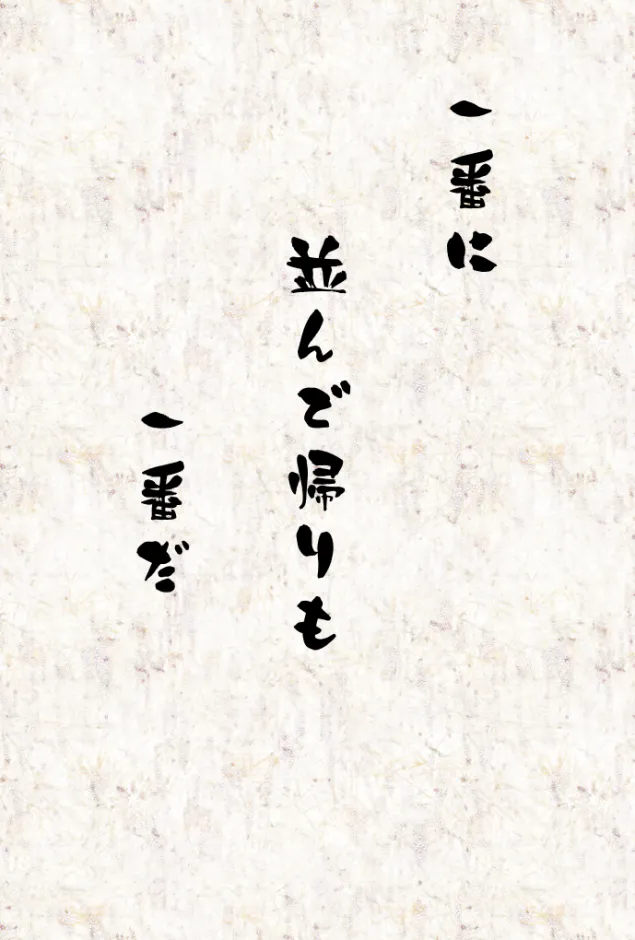 一番に
並んで帰りも
一番だ